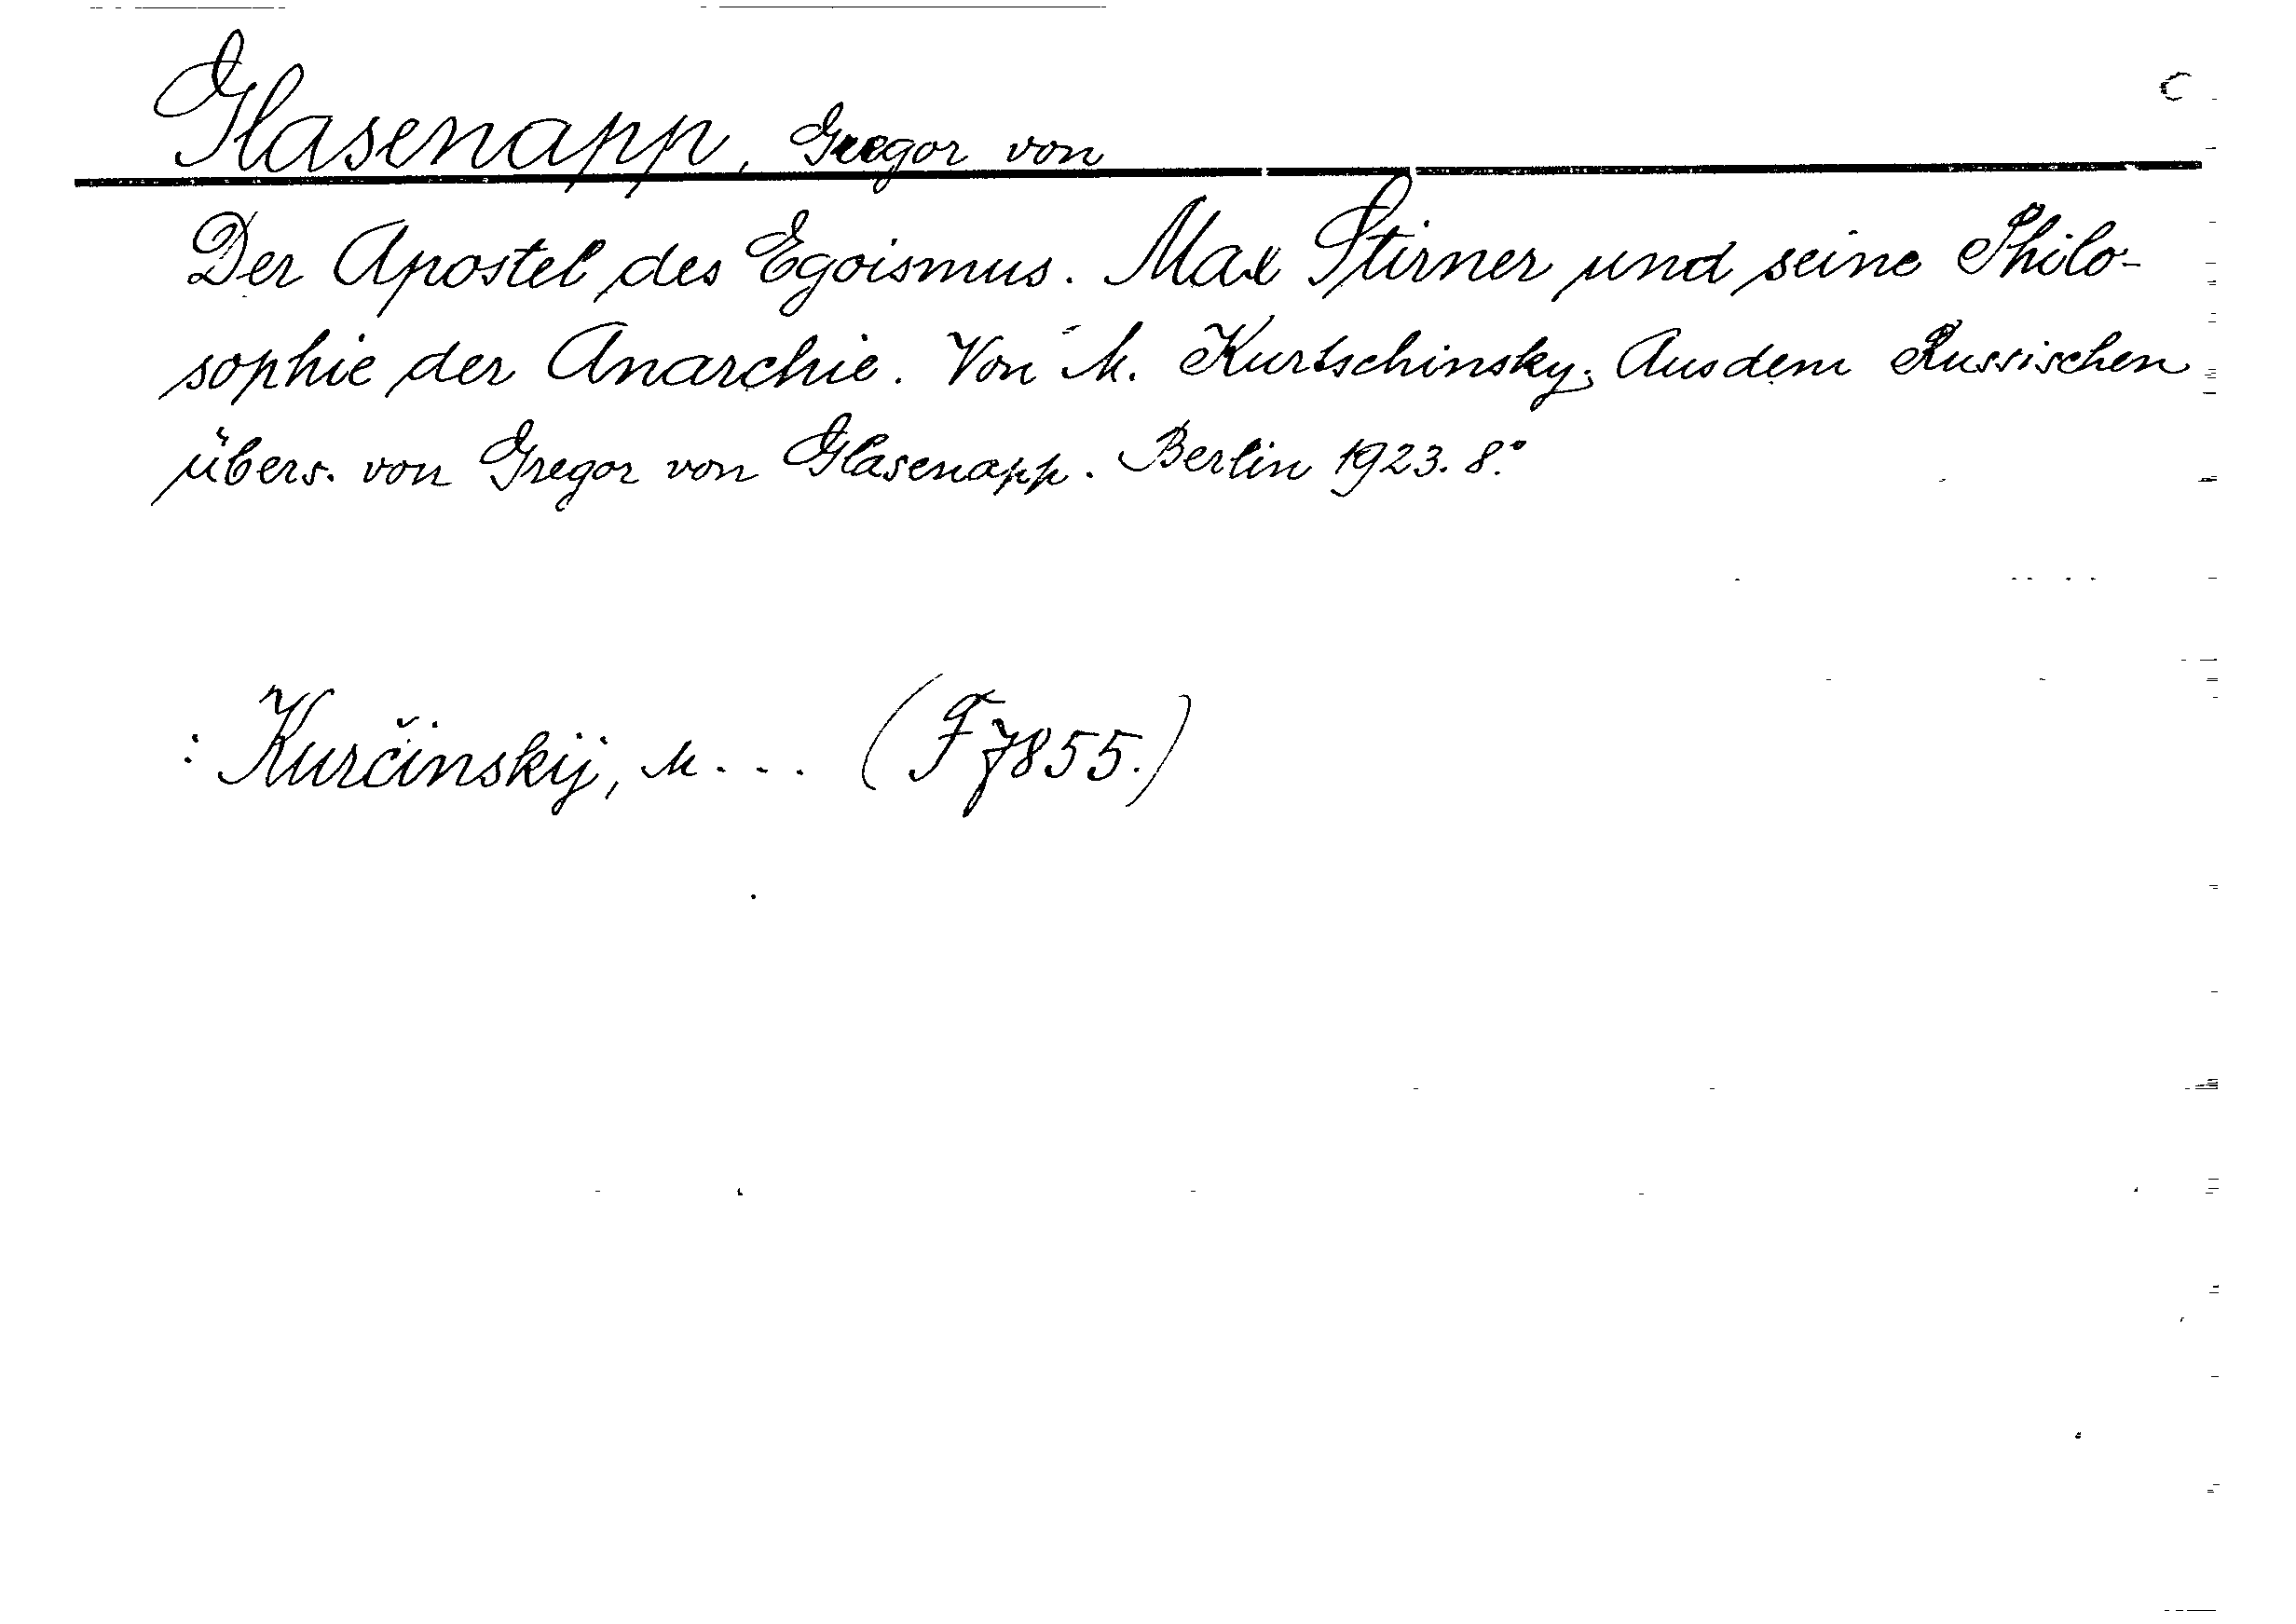 Glasenapp, Gregor von
Der Apostel des Egoismus. Max Stirner und seine Philo-
sophie der Anarchie. Von M. Kurtschinsky. Aus dem Russischen
übers. von Gregor von Glasenapp. Berlin 1923. 8.°
: Kurčinskij, M... (F 7855.)